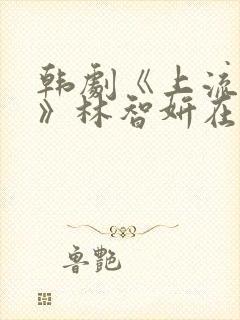 韩剧《上流
》林智妍在
鲁艳